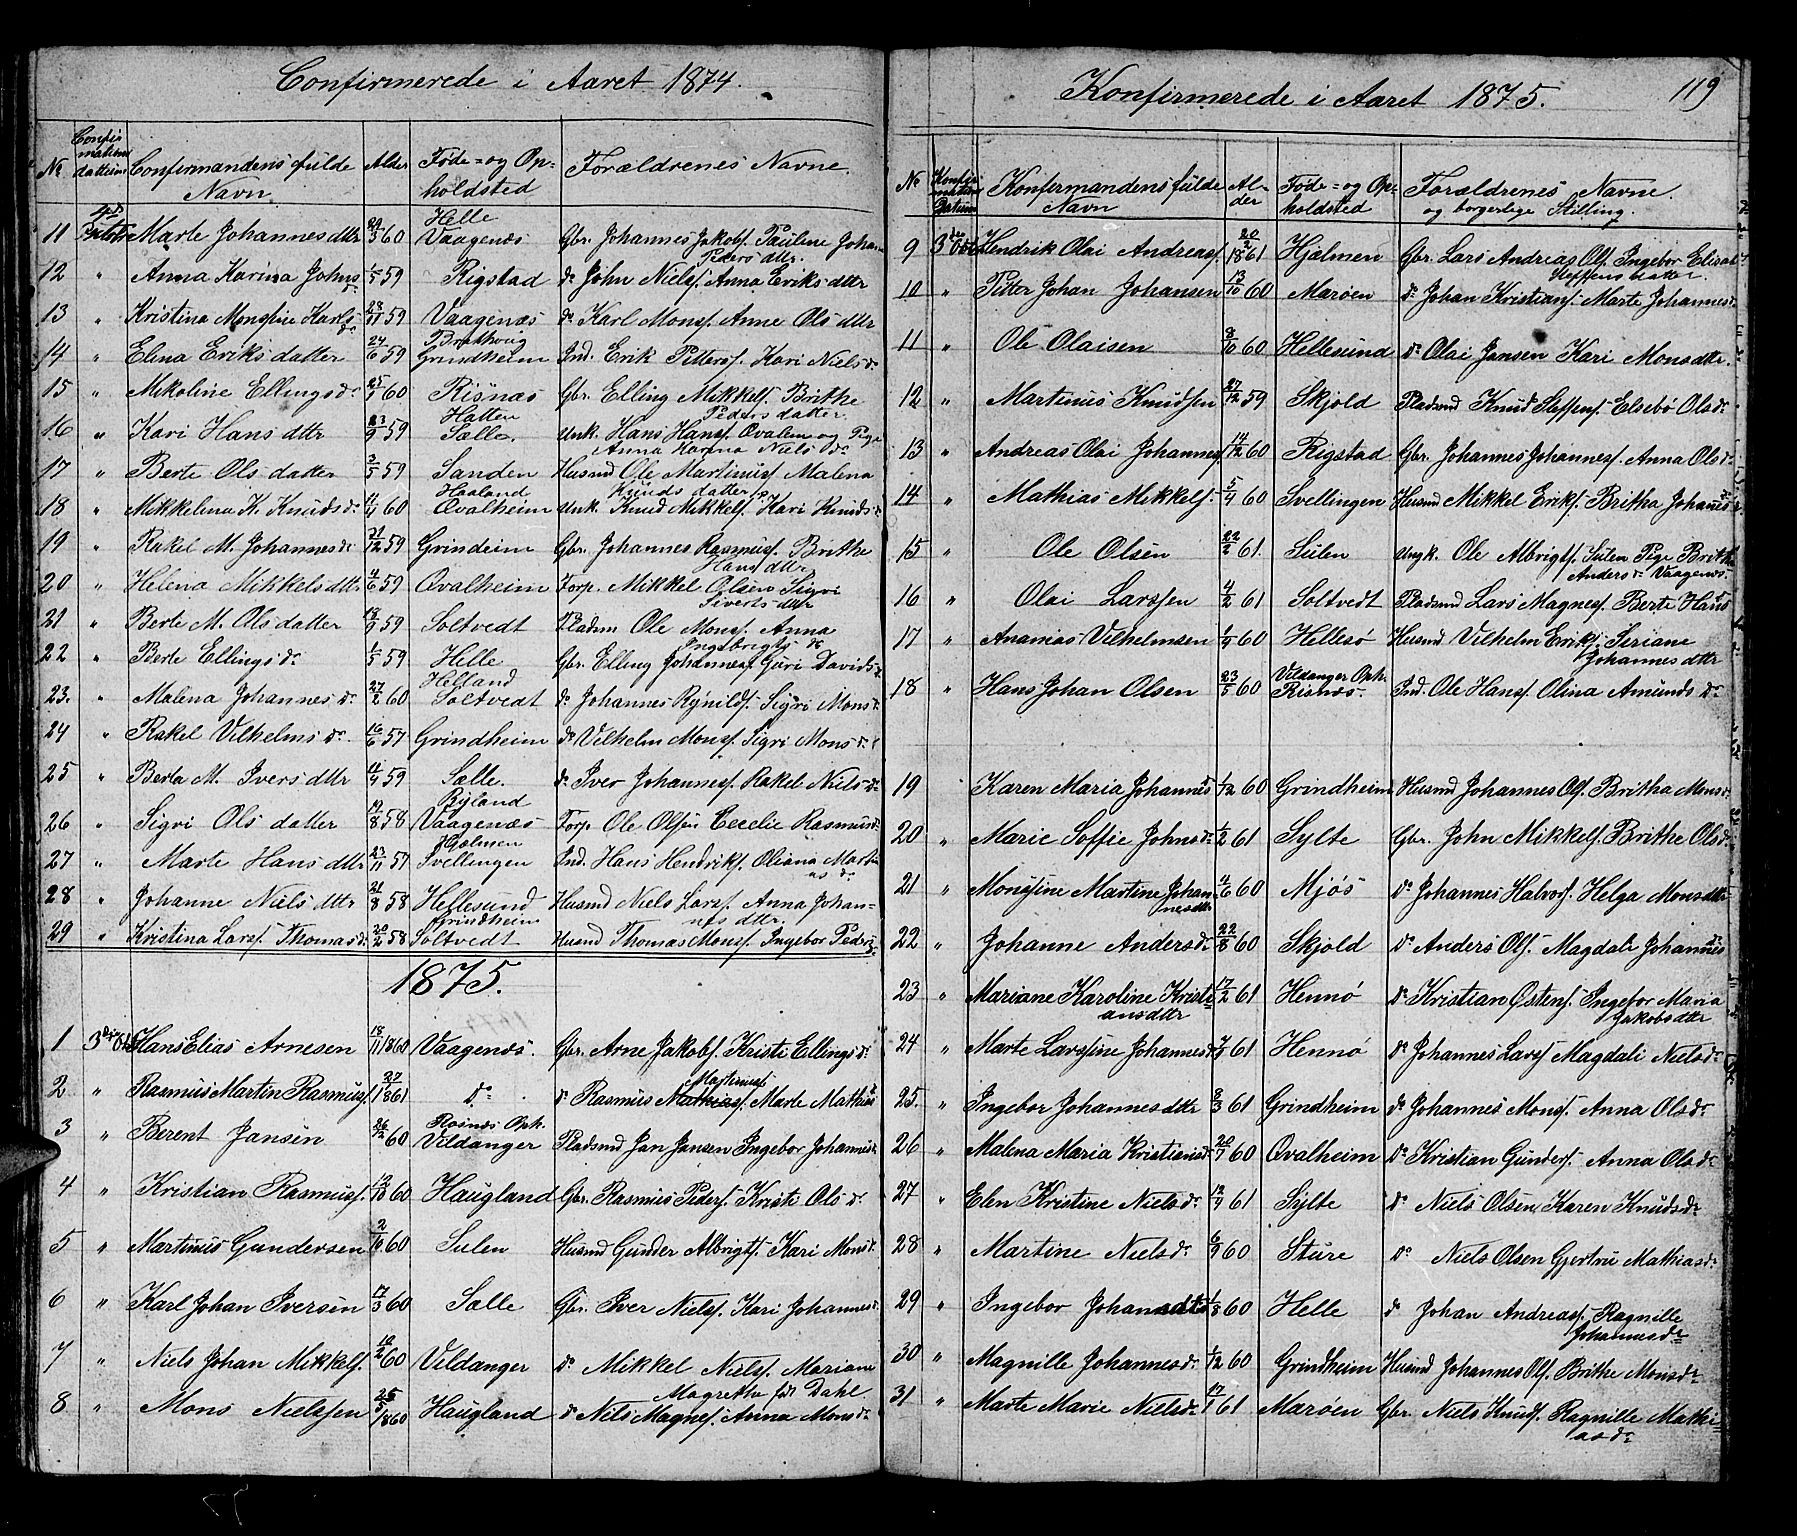 Confirmerede i Aaret 1874.
No Confirmations datum Confirmandens fulde Navn. Alder Føde- og Opholdsted Forældrenes Navne.
11 Marte Johannes dttr 60 Helle Vaagenæs Gbr. Johannes Jakobs. Pauline Johan Peders dttr.
12 " Anna Karina Johnsd. 59 Rigstad do John Niels. Anna Eriks dttr
13 " Kristina Monsine Karls do 28/11 59 Vaagenæs do Karl Mons. Anne Ols dttr
14 " Elina Eriks datter 24/6 59 Grindheim Ind. Erik Peters. Kari Niels do
15 " Mikoline Ellings do 60 Risnæs Gbr. Elling Mikkels. Brithe Peders datter
16 " Kari Hans dttr 59 Hatten Sælle. Unk. Hans Hans. Qvalem og Pige Anna Karina Niels do
17 " Berte Ols datter 3/5 59 Sanden Husmd Ole Martinus. Malena Knuds datter
18 " Mikkelena K. Knuds do 11/4 60 Haaland Qvalheim Unk. Knud Mikkels. Kari Knuds do
19 " Rakel M. Johannes do 21/12 59 Grindeim Gbr. Johannes Rasmus. Brithe Hans dttr
20 " Helena Mikkels dttr 4/6 59 Qvalheim Forp. Mikkel Olsen Sigri Siverts dttr
21 " Berte M. Ols datter 59 Soltvedt Pladsm Ole Mons. Anna Ingebrigts do
22 " Berte Ellings do 1/5 59 Helle Gbr. Elling Johannes. Guri Davids do
23. " Malena Johannes do 27/2 60 Helland Soltvedt do Johannes Rignilds. Sigri Mons do
24 " Rakel Vilhelms do 16/6 57 Grindheim do Vilhelm Mons. Sigri Mons do
25 " Berta M. Ivers dttr 11/9 59 Sælle. do Iver Johannes. Rakel Niels do
26 " Sigri Ols datter 19/8 58 Ryland Vaagenæs Forp. Ole Olsen Cecelie Rasmus do
27 " Marte Hans dttr 23/11 57 Holmen Svellingen Ind. Hans Hendriks. Oliana Martin as do
28 " Johanne Niels dttr 21/8 58 Hellesund Husmd Niels Lars. Anna Johannes dttr.
29 " Kristina Lars. Thomas do 20/2 58 Grindheim Soltvedt Husmd Thomas Mons. Ingebor Peders do
1875.
1 Hans Elias Arnesen 18/11 1860 Vaagenæs. Gbr. Arne Jakobs. Kristi Ellings do
2 " Rasmus Martin Rasmus. 27/1 1861 do do Rasmus Martinus Mathias. Marte Mathias
3 " Berent Jansen 26/12 60 Risnæs Oph. Vildanger Pladsmd Jan Jansen Ingebor Johannes do
4 " Kristian Rasmus. 12/10 60 Haugland Gbr. Rasmus Peders. Kristi Ols do
5 " Martinus Gundersen 2/10 60 Sulen Husmd Gunder Albrigts. Kari Mons do
6 " Karl Johan Iversen 17/3 60 Sælle Gbr. Iver Niels. Kari Johannes do
7 " Niels Johan Mikkels. 60 Vildanger do Mikkel Niels. Mariane Magrethe fdt Dahl
8 " Mons Nielsen 1860 Haugland do Nils Magnes. Anna Mons do
Konfirmerede i Aaret 1875. 119
No Konfirmations Datum Konfirmandens fulde Navn Alder Føde- og Opholdsted Forældrenes Navne og borgerlige Stilling.
9 Hendrik Olai Andreas. 20/2 1861 Hjelmen Gbr. Lars Andreas Ols. Ingebor Elisab Steffens datter
10 " Pitter Johan Johansen 13/10 60 Marøen do Johan Kristians. Marte Johannes do
11 " Ole Olaisen 8/10 60 Hellesund do Olai Jansen Kari Mons dttr.
12 " Martinus Knudsen 27/12 59 Skjold Pladsmd Knud Steffens. Elsebø Ols do
13 " Andreas Olai Johannes. 14/12 60 Rigstad Gbr. Johannes Johannes. Anna Ols do
14 " Mathias Mikkels. 5/4 60 Svellingen Husmd Mikkel Eriks. Britha Johannes do
15 " Ole Olsen 22/2 61. Sulen Ungk. Ole Albrigts. Sulen Pige Britha Anders do Vaagenæs.
16 " Olai Larssen 4/2 61 Soltvedt Pladsmd Lars Magnes. Berte Hans
17 " Ananias Vilhelmsen 1/9 60 Hellesø Husmd Vilhelm Eriks. Seriane Johannes dttr
18 " Hans Johan Olsen 23/5 60 Vildanger Oph. Risnæs. Ind. Ole Hans. Olina Amunds do
19 Karen Maria Johannes do 1/12 60 Grindheim Husmd Johannes Ols. Britha Mons do
20 " Marie Soffie Johns do 1/2 61 Sylte Gbr. John Mikkels. Brithe Ols do
21 " Monsine Martine Johannesdttr 4/6 60 Mjøs do Johannes Halvors. Helga Monsdttr
22 " Johanne Anders do 22/8 60 Skjold do Anders Ols. Magdali Johannes do
23 " Mariane Karoline Kristiansdttr 17/2 61 Hennø do Kristian Østens. Ingebor Maria Jakobsdttr
24 " Marte Larsine Johannes do 61 Hennø do Johannes Lars. Magdali Niels do
25. " Ingebor Johannes dttr 8/3 61 Grindheim do Johannes Mons. Anna Ols do
26 " Malena Maria Kristians do 20/7 60 Qvalheim do Kristian Gunders. Anna Ols do
27 " Elen Kristine Niels do 61 Sylte do Niels Olsen Karen Knuds do
28 " Martine Niels do 6/9 60 Sture do Niels Olsen Gjertru Mathias do
29 " Ingebor Johansdtr 1/8 60 Helle do Johan Andreas. Ragnille Johannes do
30 " Magnille Johannes do 1/12 60 Grindheim Husmd Johannes Ols. Brithe Mons do
31 " Marte Marie Niels do 17/1 61 Marøen Gbr. Niels Knuds. Ragnille Mathias do